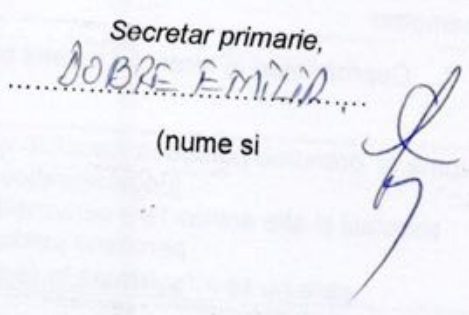 Secretar primarie,
DOBRE EMILIA
(nume si